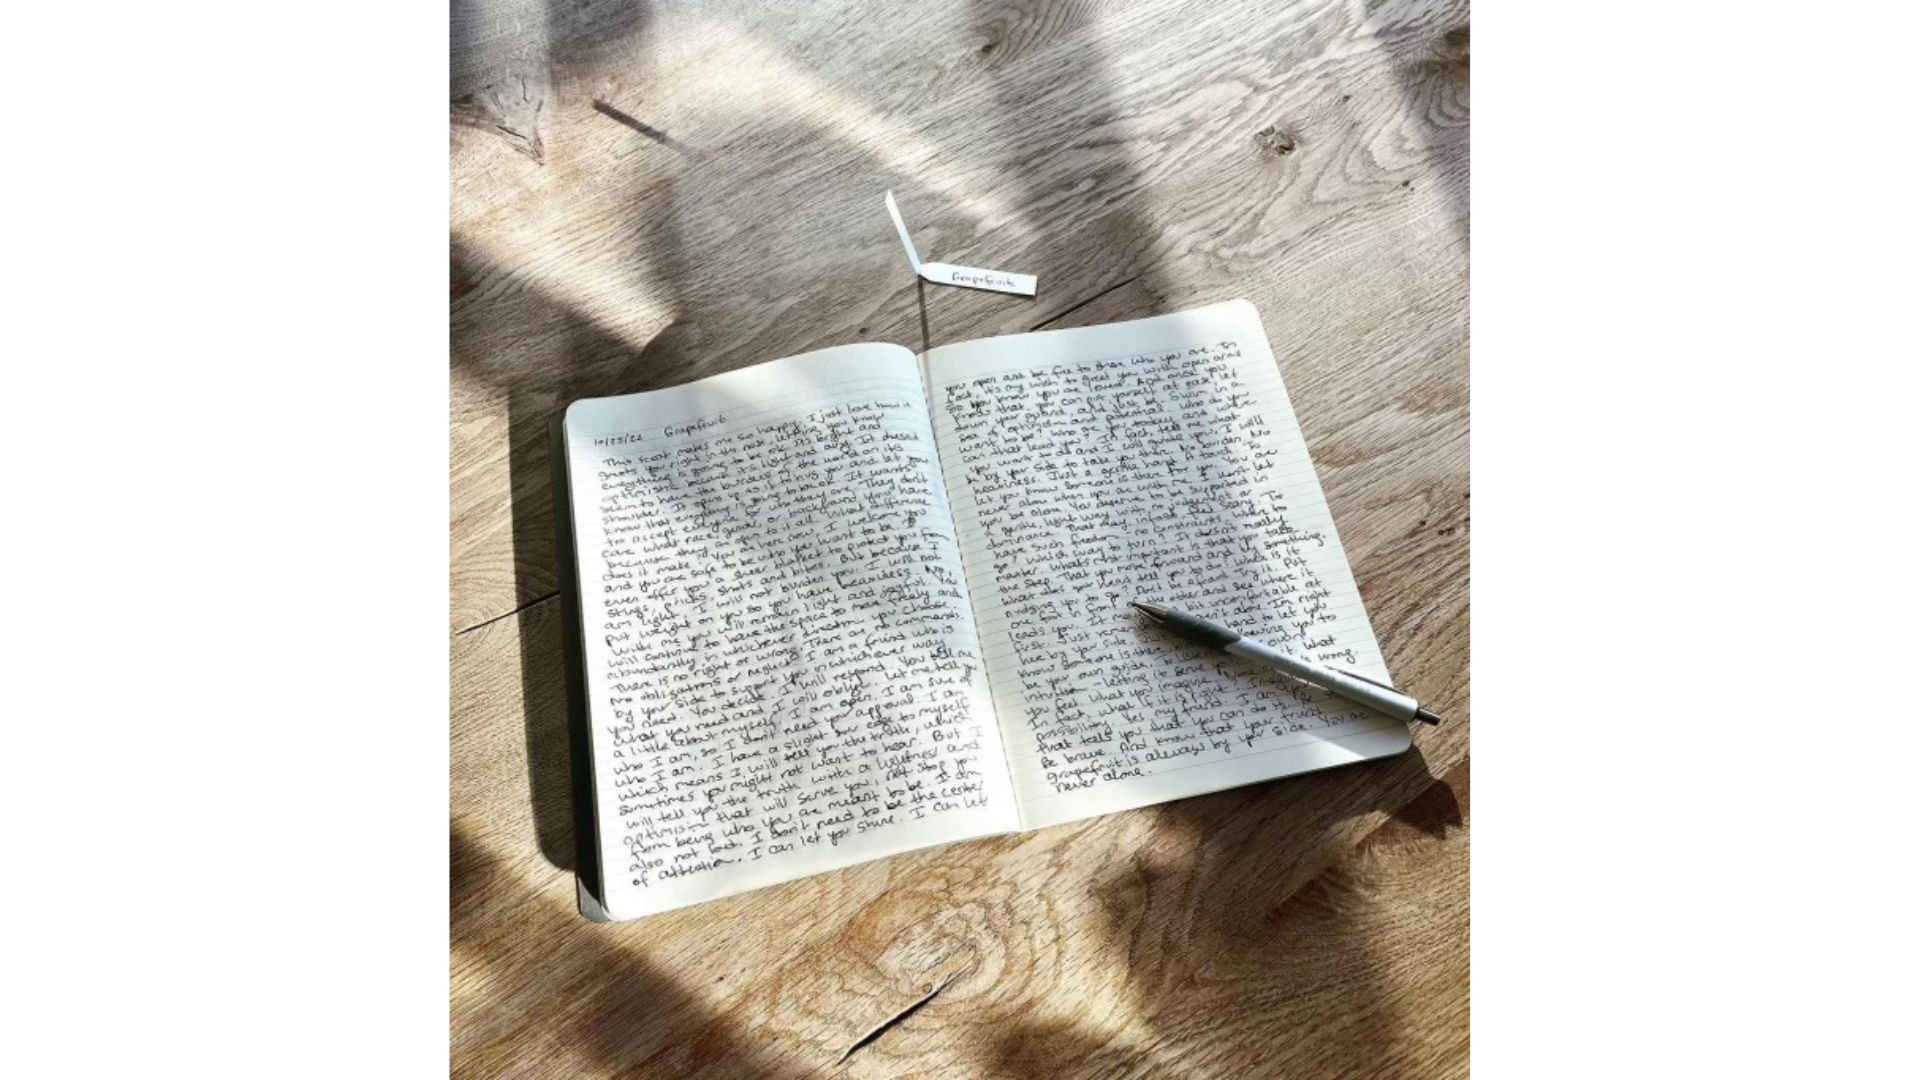 Grapefruit
10/25/22 Grapefruit
This scent makes me so happy. I just love how it
greets you right in the nose, letting you know
everything is going to be ok. It's bright and
optimistic because it's light and airy. It doesn't
seem to have the burdens of the world on its
shoulders. It opens up as if to hug you and let you
know that everything is going to be ok. It wants
to accept everyone for who they are. They don't
care what race, gender, or background you have
because they are open to it all. What difference
does it make? You are here now. I welcome you
and you are safe to be who you want to be. I'll
even offer you a sheer blanket to protect you from
stings, pricks, shots and bites. But because I
am light, I will not burden you. I will not
put weight on you so you have heaviness. No,
with me you will remain light and joyful. You
will continue to have the space to move freely and
abundantly in whichever direction you choose.
There is no right or wrong. There are no commands.
No obligations or neglect. I am a friend who is
by your side to support you in whichever way
you need. You decide. I will respond. You tell me
what you need and I will oblige. Let me tell you
a little about myself. I am open. I am sure of
who I am, so I don't need your approval. I am
who I am. I have a slight sour edge to myself
which means I will tell you the truth, which
sometimes you might not want to hear. But I
will tell you the truth with a lightness and
optimism that will serve you, not stop you
from being who you are meant to be. I am
also not loud. I don't need to be the center
of attention. I can let you shine. I can let
you open and be free to share who you are. In
fact, it's my wish to greet you with open arms
so you know you are loved. And once you
know that you can put yourself at ease, let
down your guard and just be. Swim in a
sea of optimism and potential. Who do you
want to be? Who are you today and where
can that lead you? In fact, tell me what
you want to do and I will guide you. I will
be by your side to take you there. No burden. No
heaviness. Just a gentle hand to touch. To
let you know someone is there for you. You are
never alone when you are with me. I won't let
you be alone. You deserve to be supported in
a gentle, light way with no judgement or
dominance. That may, in fact, feel scary. To
have such freedom - no constraints. Where to
go? Which way to turn? It doesn't really
matter. What's most important is that you take
the step. That you move forward and do something.
What does your heart tell you to do? What is it
nudging you to go? Don't be afraid. Try it. Put
one foot in front of the other and see where it
leads you. It may bit uncomfortable at
first. Just remember alone. I'm right
here by your side. hand to let you
know someone is there allowing you to
be your own guide, to own
intuition - letting it serve it. What
you feel, what you imagine. None is wrong.
In fact, what if it is right? Imagine
possibility. Yes my friend. I am
that tells you that you can do
Be brave. And know that your friend
grapefruit is always by your side. You are
never alone.